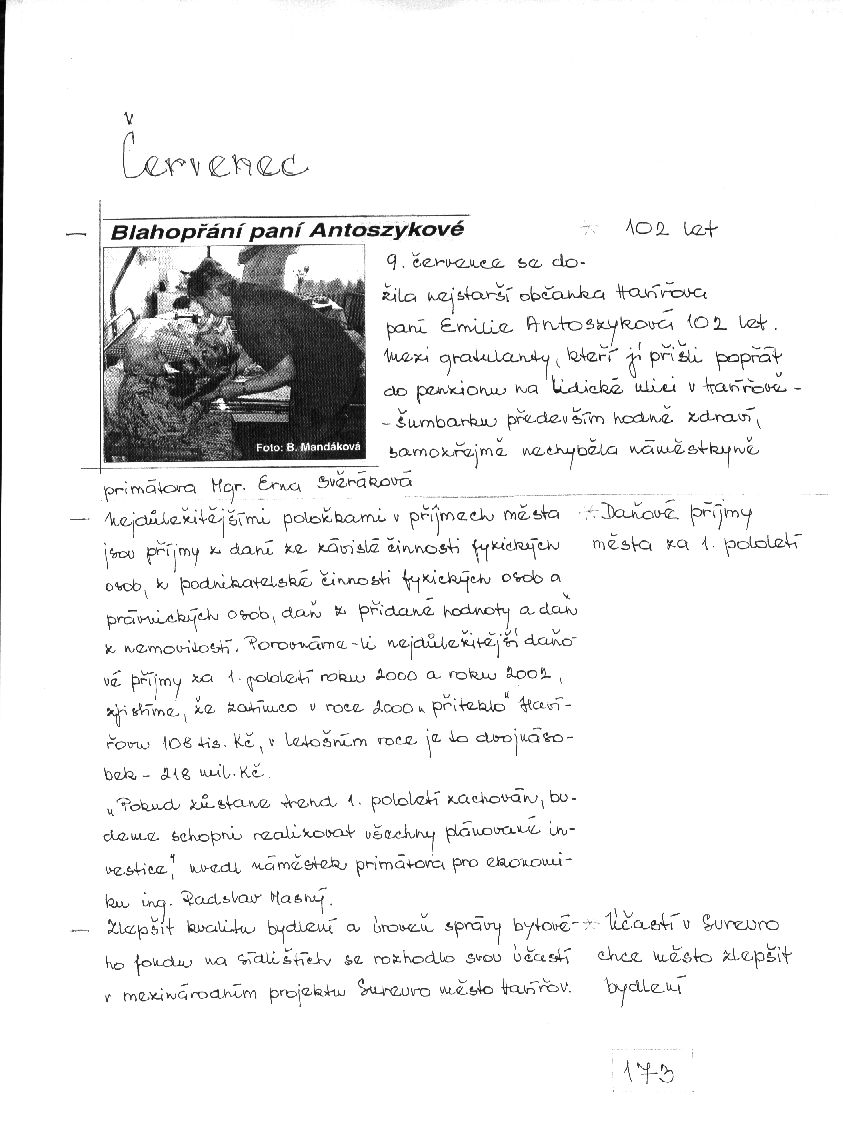 Červenec
— Blahopřání paní Antoszykové
Foto: B. Mandáková
102 let
9. července se do-
žila nejstarší občanka Havířova
paní Emilie Antoszyková 102 let.
Mezi gratulanty, kteří jí přišli popřát
do penzionu na Lidické ulici v Havířově -
- Šumbarku především hodně zdraví,
samokřejmě nechyběla náměstkyně
primátora Mgr. Erna Svěráková
— Nejdůležitějšími položkami v příjmech města
jsou příjmy z daní ze závislé činnosti fyzických
osob, z podnikatelské činnosti fyzických osob a
právnických osob, daň z přidané hodnoty a daň
z nemovitostí. Porovnáme-li nejdůležitější daňo-
vé příjmy za 1. pololetí roku 2000 a roku 2002,
zjistíme, že zatímco v roce 2000 „přiteklo" Haví-
řovu 108 tis. Kč, v letošním roce je to dvojnáso-
bek - 218 mil. Kč.
„Pokud zůstane trend 1. pololetí zachován, bu-
deme schopni realizovat všechny plánované in-
vestice", uvedl náměstek primátora pro ekonomi-
ku ing. Radslav Masný.
Daňové příjmy
města za 1. pololetí
— Zlepšit kvalitu bydlení a úroveň správy bytové-
ho fondu na sídlištích se rozhodlo svou účastí
v mezinárodním projektu Sureuro město Havířov.
Účastí v Sureuro
chce město zlepšit
bydlení
173